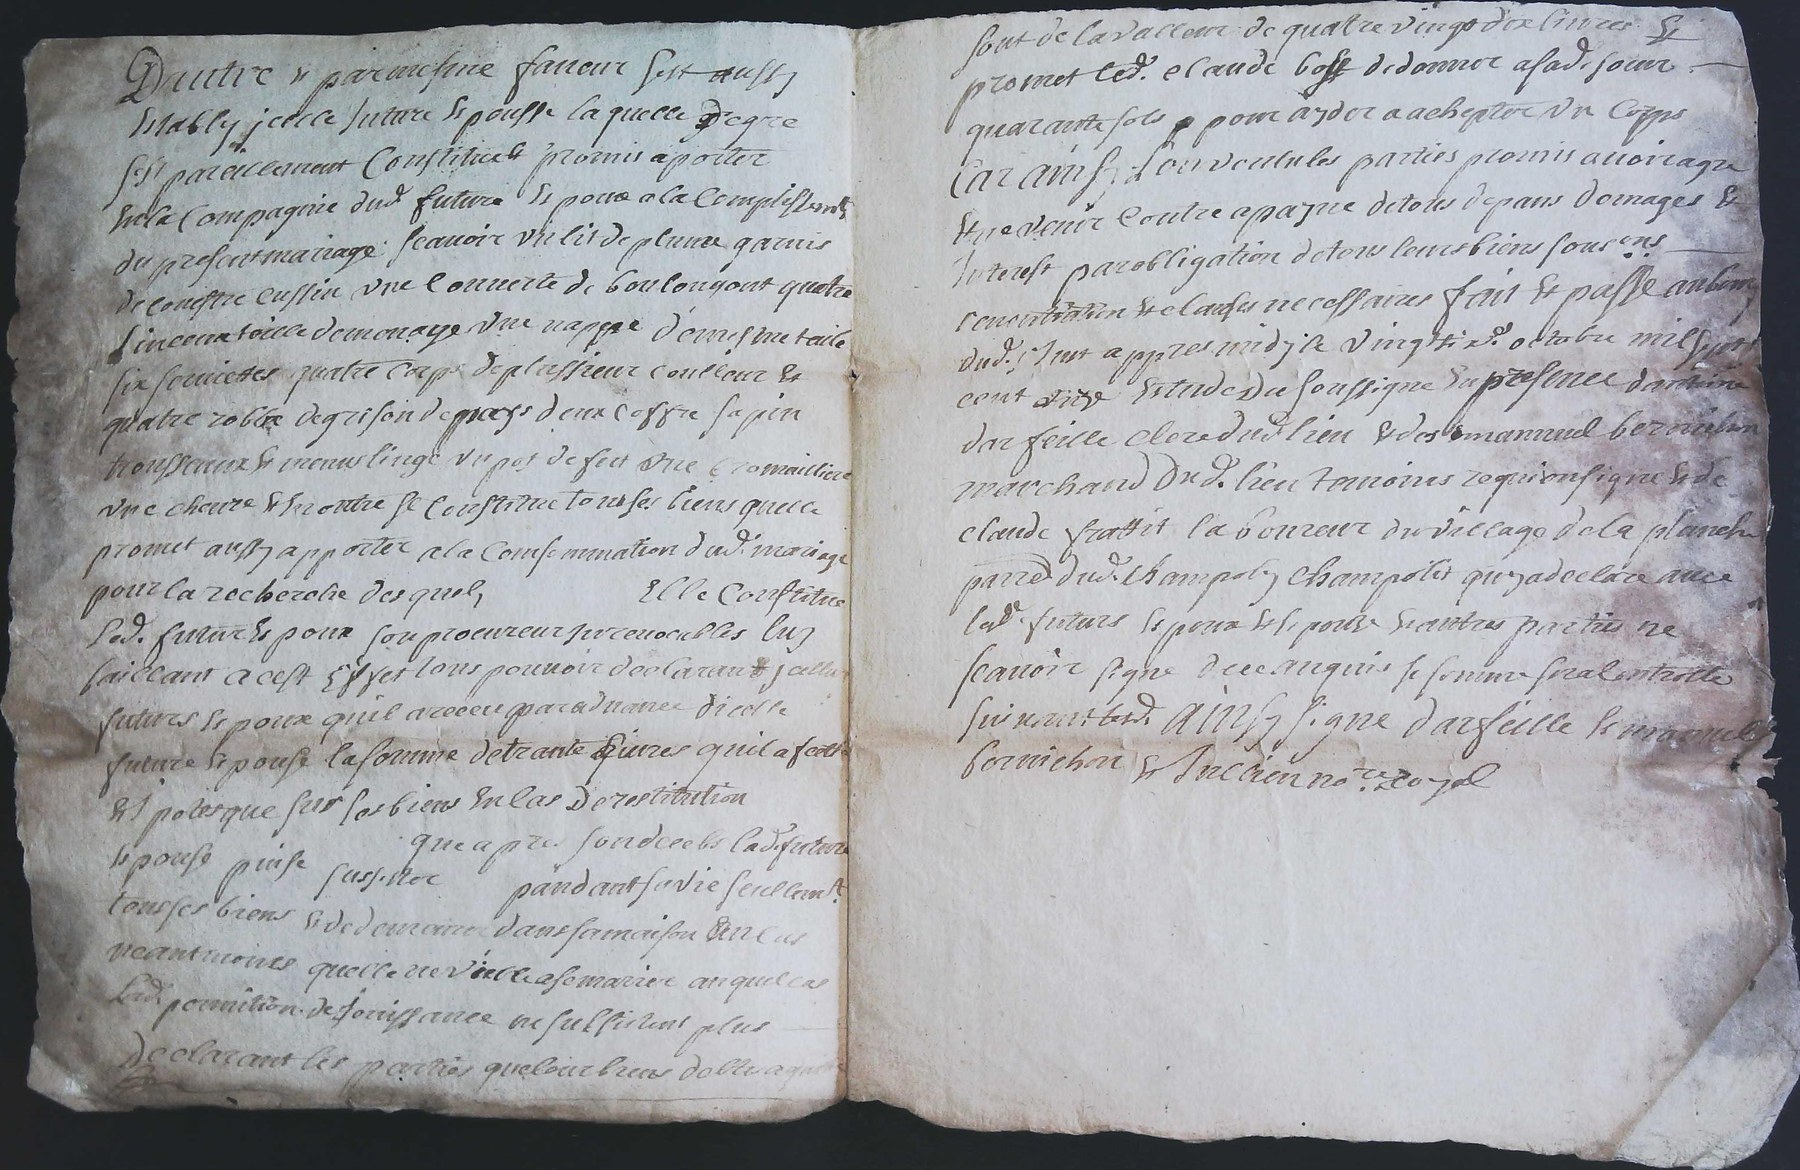 Dautre et par mesme faveur sest aussy
Estably jcelle future Espouse laquelle de gre
sest pareillement Constitue et promis aporter
En la Compagnie dud. futur Espoux a la Complissemt
du present mariage scavoir un lit de plume garnis
de couestre cussin une Couverte de boulongont quatre
linceux toille de menage une nappe de mesme toile
six serviettes quatre corps de plussieur coulleur et
quatre robbe de grison de pays deux coffre sapin
troussaux et menus linge un pot de fert une cromailliere
une chevre et En outre se Constitue tous ses biens quelle
promet aussy apporter a la Consommation dud. mariage
pour la recherche desquels Elle Constitue
led. futur Espoux son procureur jrrevocables luy
baillant a cest Effet tous pouvoir declarant jcelluy
futurs Espoux quil a receu par advance dicelle
future Espouse la somme de trante Livres quil a
et ypotesque sur ses biens En cas de restitution
que apres son decebs lad. future
Espouse puise pandant sa vie seullemt.
tous ses biens et de demeurer dans sa maison En cas
neantmoins quelle ne vielle a se marier auquel cas
lad. de jouissance ne plus
Declarant les parties que leur biens
sont de la valleur de quatre vingt dix livres et
promet led. claude bost de donner a sad. soeur
quarante sols pour ayder a achepter un Corps
Car ainsy lon voulu les parties promis avoir agre
et ne venir Contre a payne de tous depans domages et
Interest par obligation de tous leurs biens sous.ons
renontiation et clauses necessaires fait et passe au bourg
dud. St Just appres midy le vingt six.e octobre mil sept
cent Estude du soussigne En presence dantoine
darfeille clerc dud. lieu et des Emanuuel bernichon
marchand dud. lieu temoins requi on signe et de
claude frattit laboureur du village de la planche
parre. dud. Champoly Champolit quy a declare avec
led. futurs Espoux et Espouse et autres parties ne
scavoir signe de ce anquis se somme sera Controlle
suivant led. Ainsy signe darfeille Emanuel
bernichon et Ancien no.re royal